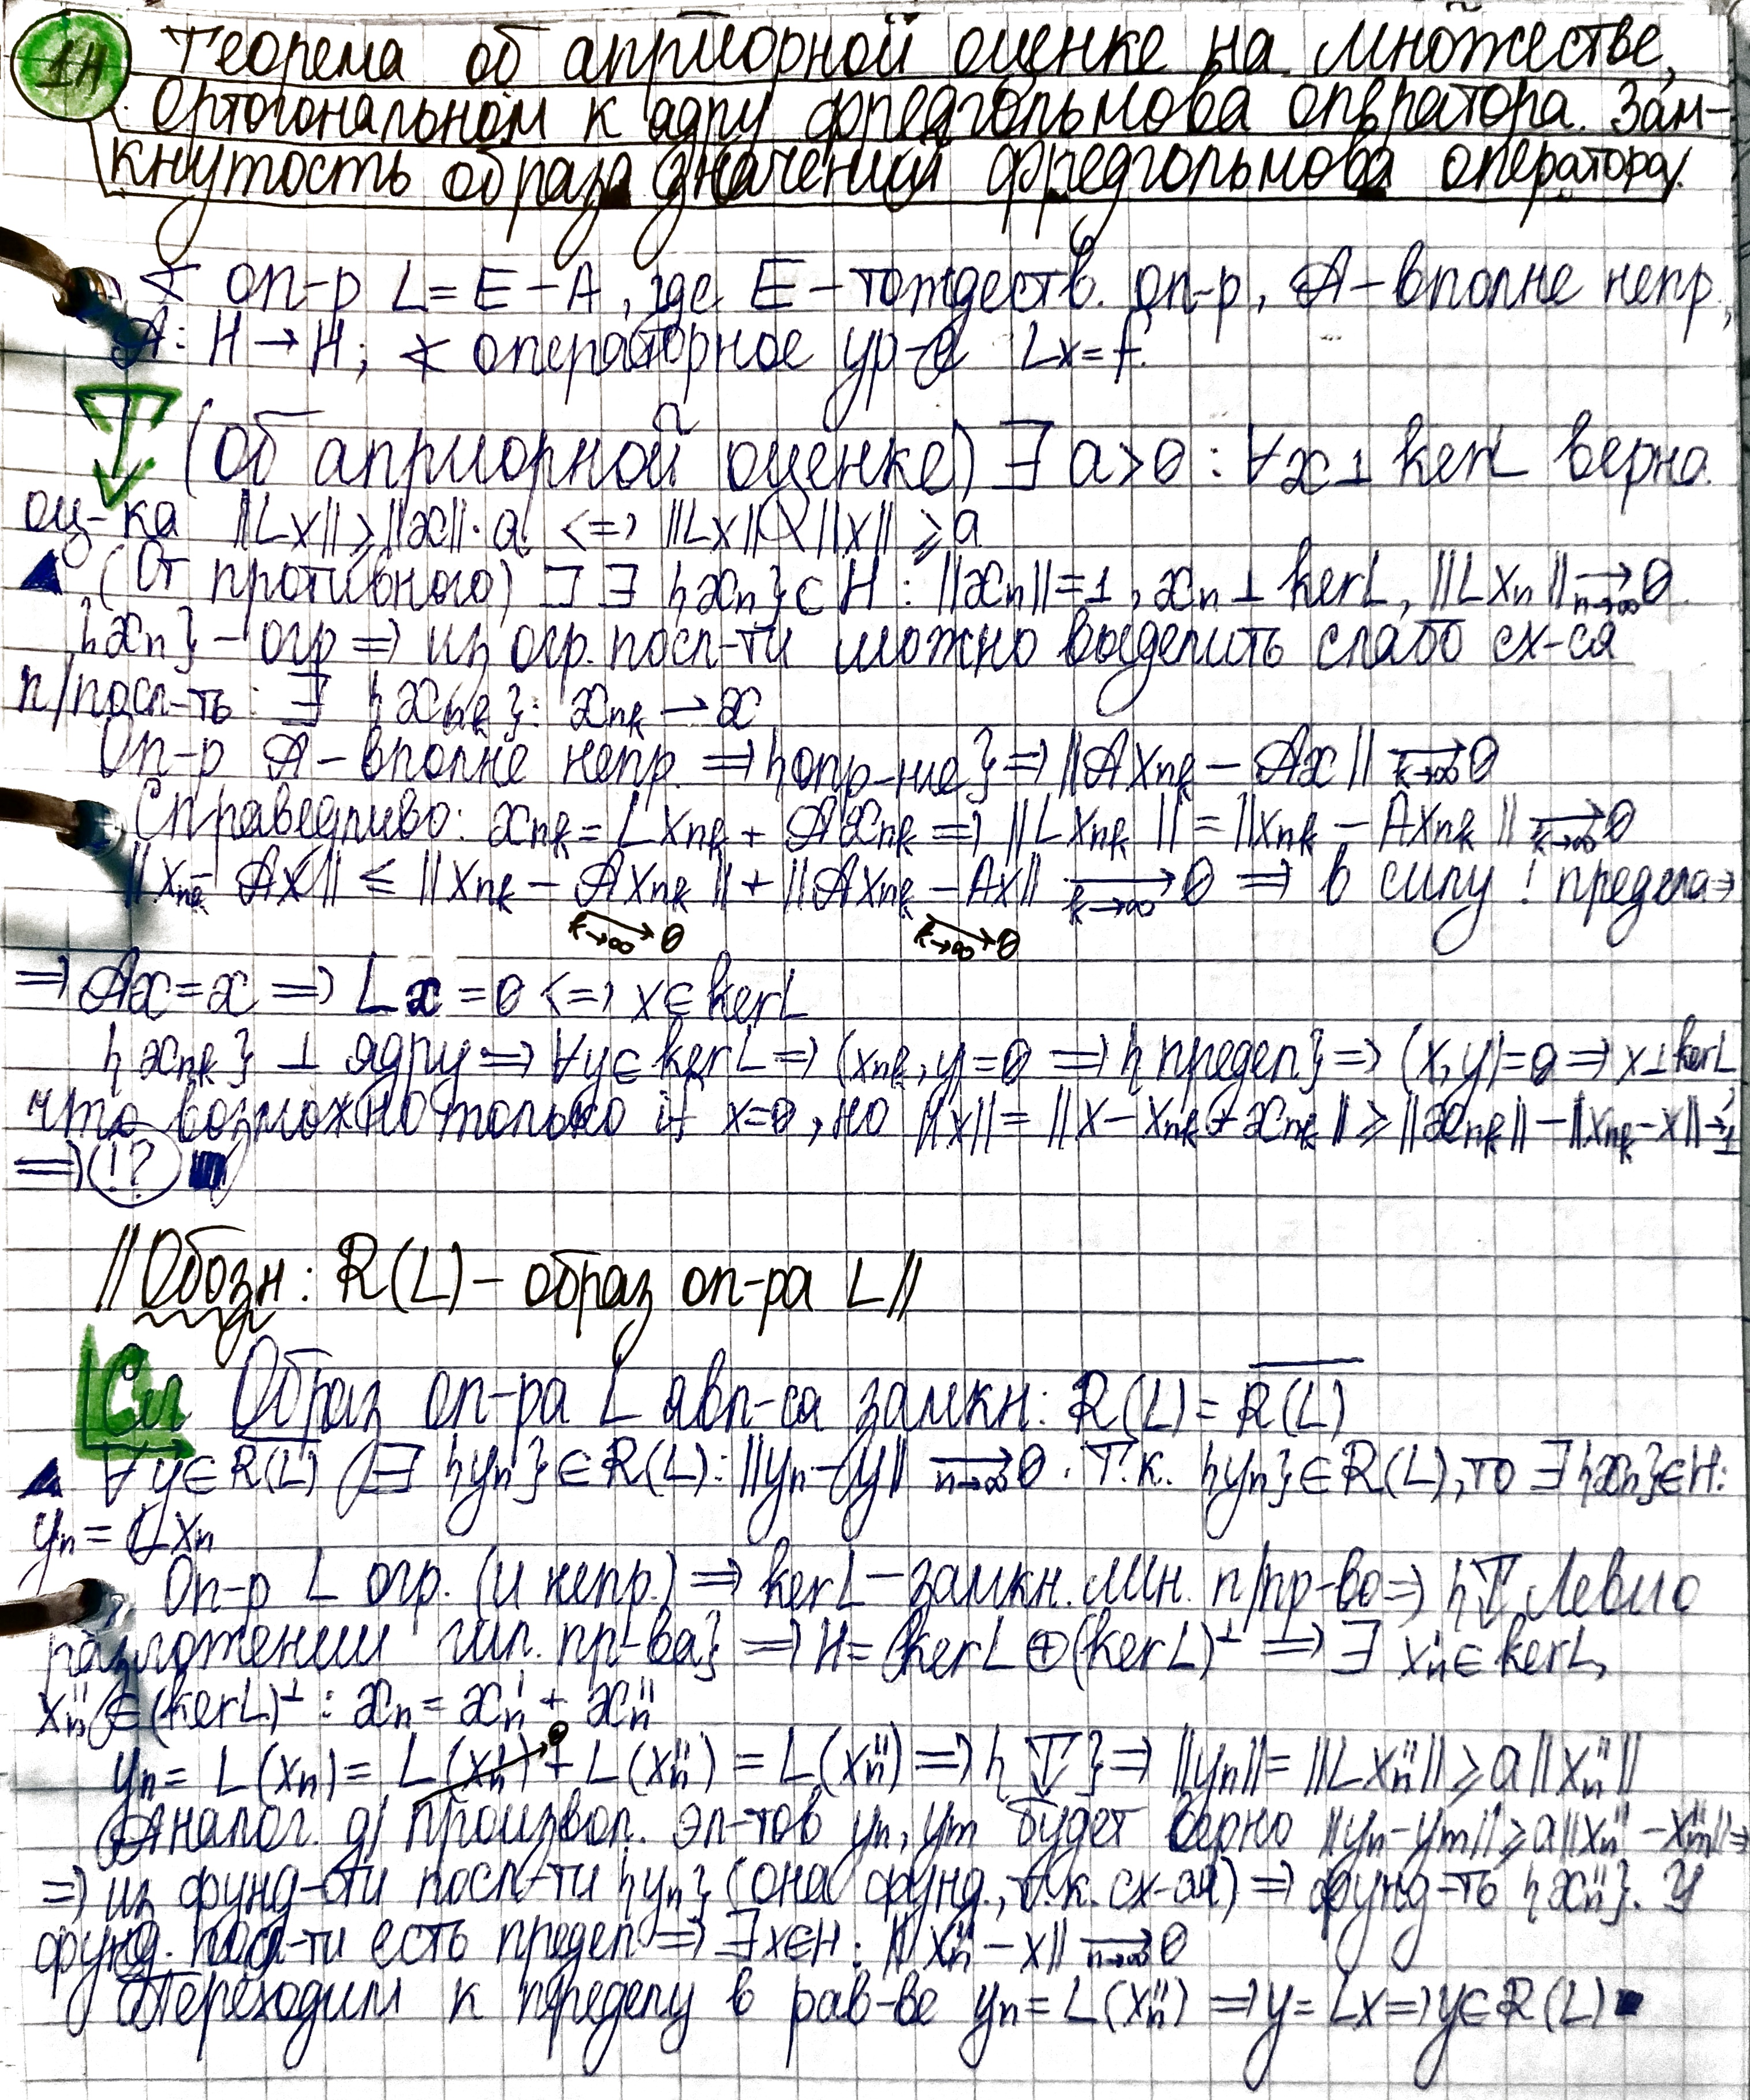 1Н Теорема об априорной оценке на множестве,
ортогональном к ядру фредгольмова оператора. Зам-
кнутость образа значений фредгольмова оператора.
∢ оп-р L = E − A, где E − тождеств. оп-р, A − вполне непр.,
A: H → H; ∢ операторное ур-е Lx = f.
T (Об априорной оценке) ∃ a > 0 : ∀x ⊥ ker L верна
оц-ка ||Lx|| ≥ ||x||·a <=> ||Lx|| \ ||x|| ≥ a
▲ (От противного) ] ∃ {xn} ⊂ H : ||xn|| = 1, xn ⊥ ker L, ||Lxn|| →n→∞ 0
{xn} − огр => из огр. посл-ти можно выделить слабо сх-ся
п/посл-ть : ∃ {xnk} : xnk → x
Оп-р A − вполне непр. => {опр-ние} => ||Axnk − Ax|| →k→∞ 0
Справедливо: xnk = Lxnk + Axnk => ||Lxnk|| = ||xnk − Axnk|| →k→∞ 0
||xnk − Ax|| ≤ ||xnk − Axnk|| + ||Axnk − Ax|| →k→∞ 0 => в силу ! предела =>
→k→∞ 0 →k→∞ 0
=> Ax = x => Lx = 0 <=> x ∈ ker L
{xnk} ⊥ ядру => ∀y ∈ ker L => (xnk, y) = 0 => {предел} => (x, y) = 0 => x ⊥ ker L,
что возможно только if x = 0, но ||x|| = ||x − xnk + xnk|| ≥ ||xnk|| − ||xnk − x|| → 1
=> !? ■
|| Обозн: R(L) − образ оп-ра L ||
Сл Образ оп-ра L явл-ся замкн: R(L) = \overline{R(L)}
▲ ∀y ∈ \overline{R(L)} ∃ {yn} ∈ R(L) : ||yn − y|| →n→∞ 0. Т.к. {yn} ∈ R(L), то ∃ {xn} ∈ H:
yn = Lxn
Оп-р L огр. (и непр.) => ker L − замкн. лин. п/пр-во => {T Леви о
разложении гил. пр-ва} => H = ker L ⊕ (ker L)⊥ => ∃ x'n ∈ ker L,
x''n ∈ (ker L)⊥ : xn = x'n + x''n
yn = L(xn) = L(x'n) →0 + L(x''n) = L(x''n) => {T} => ||yn|| = ||Lx''n|| ≥ a||x''n||
Аналог. д/ произвол. эл-тов yn, ym будет верно ||yn − ym|| ≥ a||x''n − x''m|| =>
=> из фунд-сти посл-ти {yn} (она фунд., т.к. сх-ая) => фунд-ть {x''n}. У
фунд. посл-ти есть предел => ∃ x ∈ H : ||x''n − x|| →n→∞ 0
Переходим к пределу в рав-ве yn = L(x''n) => y = Lx => y ∈ R(L) ■